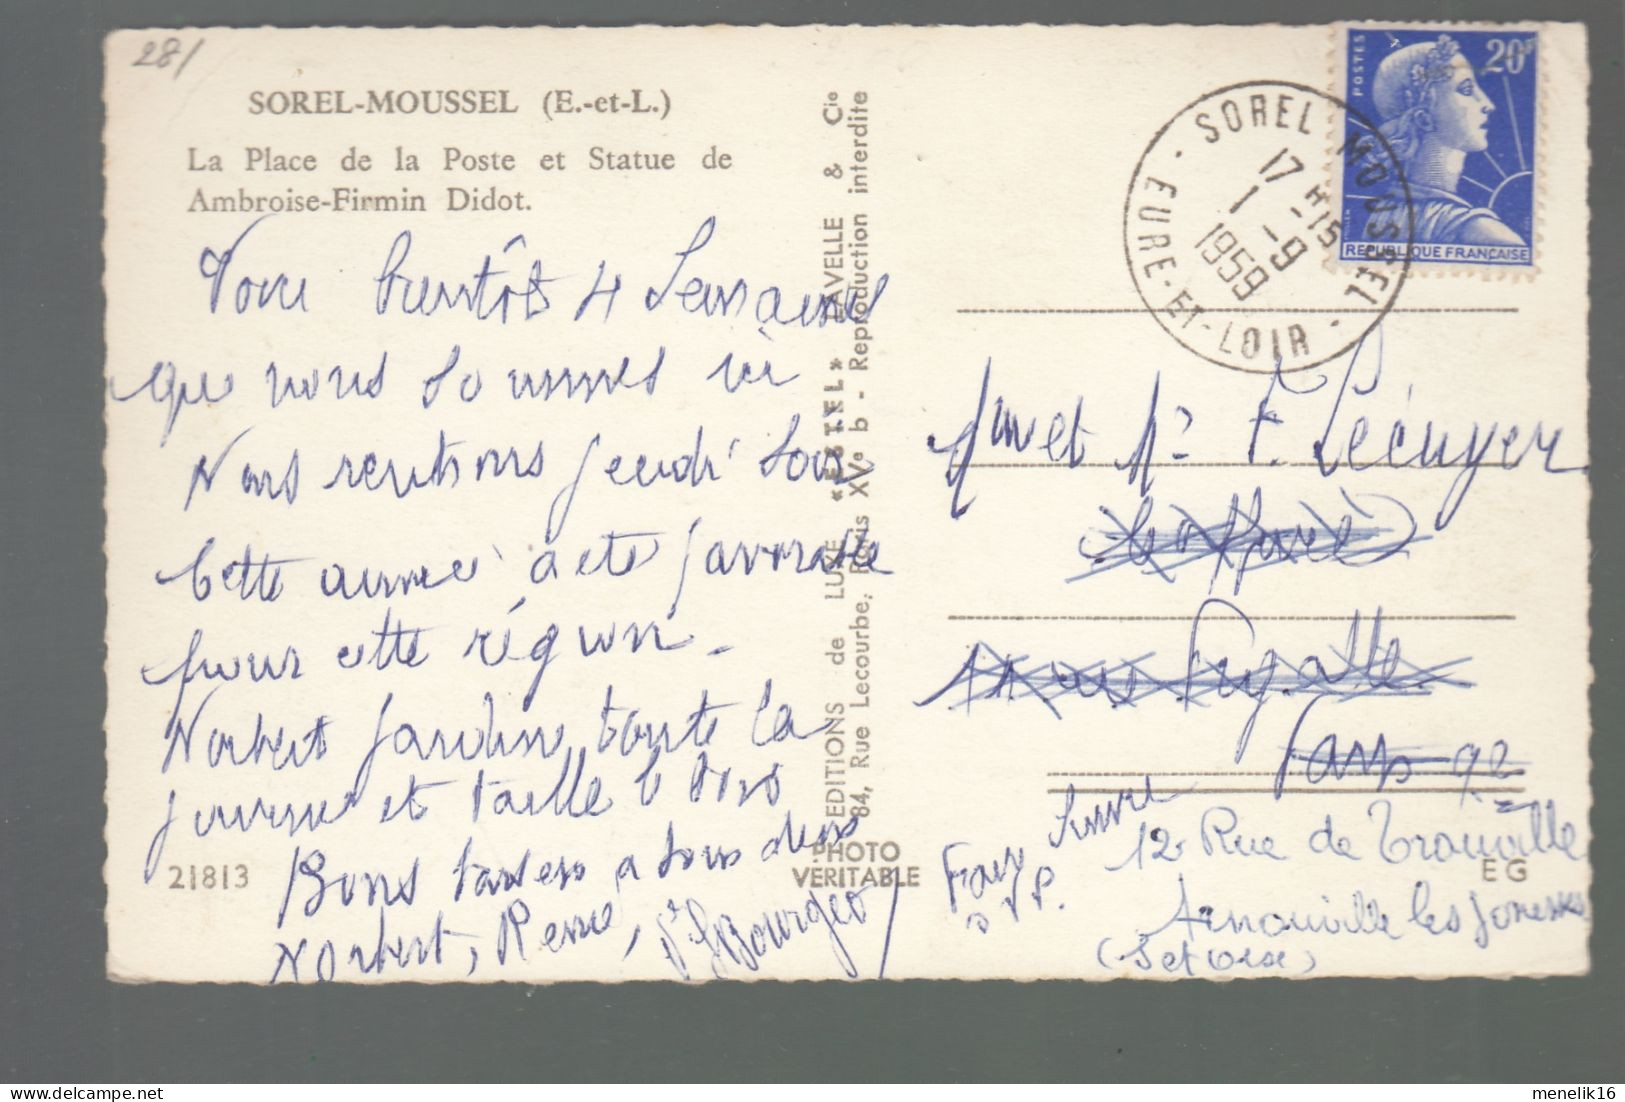 281
SOREL-MOUSSEL (E.-et-L.)
La Place de la Poste et Statue de
Ambroise-Firmin Didot.
Voici bientôt 4 Semaines
que nous sommes ici
Nous rentrons jeudi soir
Cette année a été favorable
pour cette région -
Norbert jardine toute la
journée et taille le bois
Bons baisers a tous deux
Norbert, Renée,
21813
EDITIONS de LUXE "ESTEL" LAVELLE & Cie
84, Rue Lecourbe, Paris XVe b - Reproduction interdite
PHOTO
VERITABLE
POSTES
20F
REPUBLIQUE FRANÇAISE
SOREL MOUSSEL
17 H -15
1 -9
1959
EURE-ET-LOIR
Mme et Mr F. Lécuyer
Pigalle
Paris 9e
Faire Suivre
S.V.P.
12 Rue de Trouville
EG
Arnouville les Gonesses
(Set Oise)
menelik16